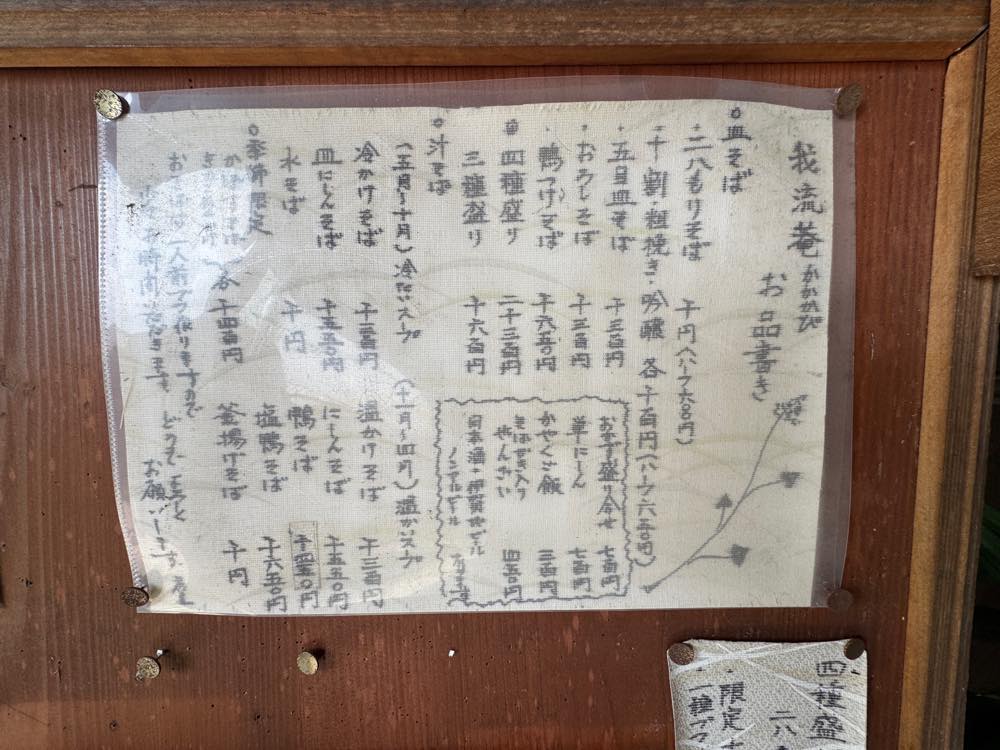 我流菴 かかかび
お品書き
○皿そば
・二八もりそば 千円(ハーフ六〇〇円)
・十割・粗挽き・吟醸 各千百円(ハーフ六五〇円)
・五目皿そば 千三百円
・おろしそば 千三百円
・鴨つけそば 千六五〇円
四種盛り 二千三百円
三種盛り 千六百円
おかず盛り合せ 七百円
単にしん 七百円
かやくご飯 三百円
そばがき入り
ぜんざい 四五〇円
日本酒・伊賀地ビール
ノンアルビール 有ます
○汁そば
(五月〜十月)冷たいスープ
冷かけそば 千三百円
皿にしんそば 千五五〇円
水そば 千円
(十一月〜四月)温かいスープ
温かけそば 千三百円
にしんそば 千五五〇円
鴨そば 千四五〇円
塩鴨そば 千六五〇円
釜揚げそば 千円
○季節限定
各千四百円
おそばは一人前ずつ作りますので
お時間いただきます どうぞ宜しく
お願いします。
四種盛
二八
・限定